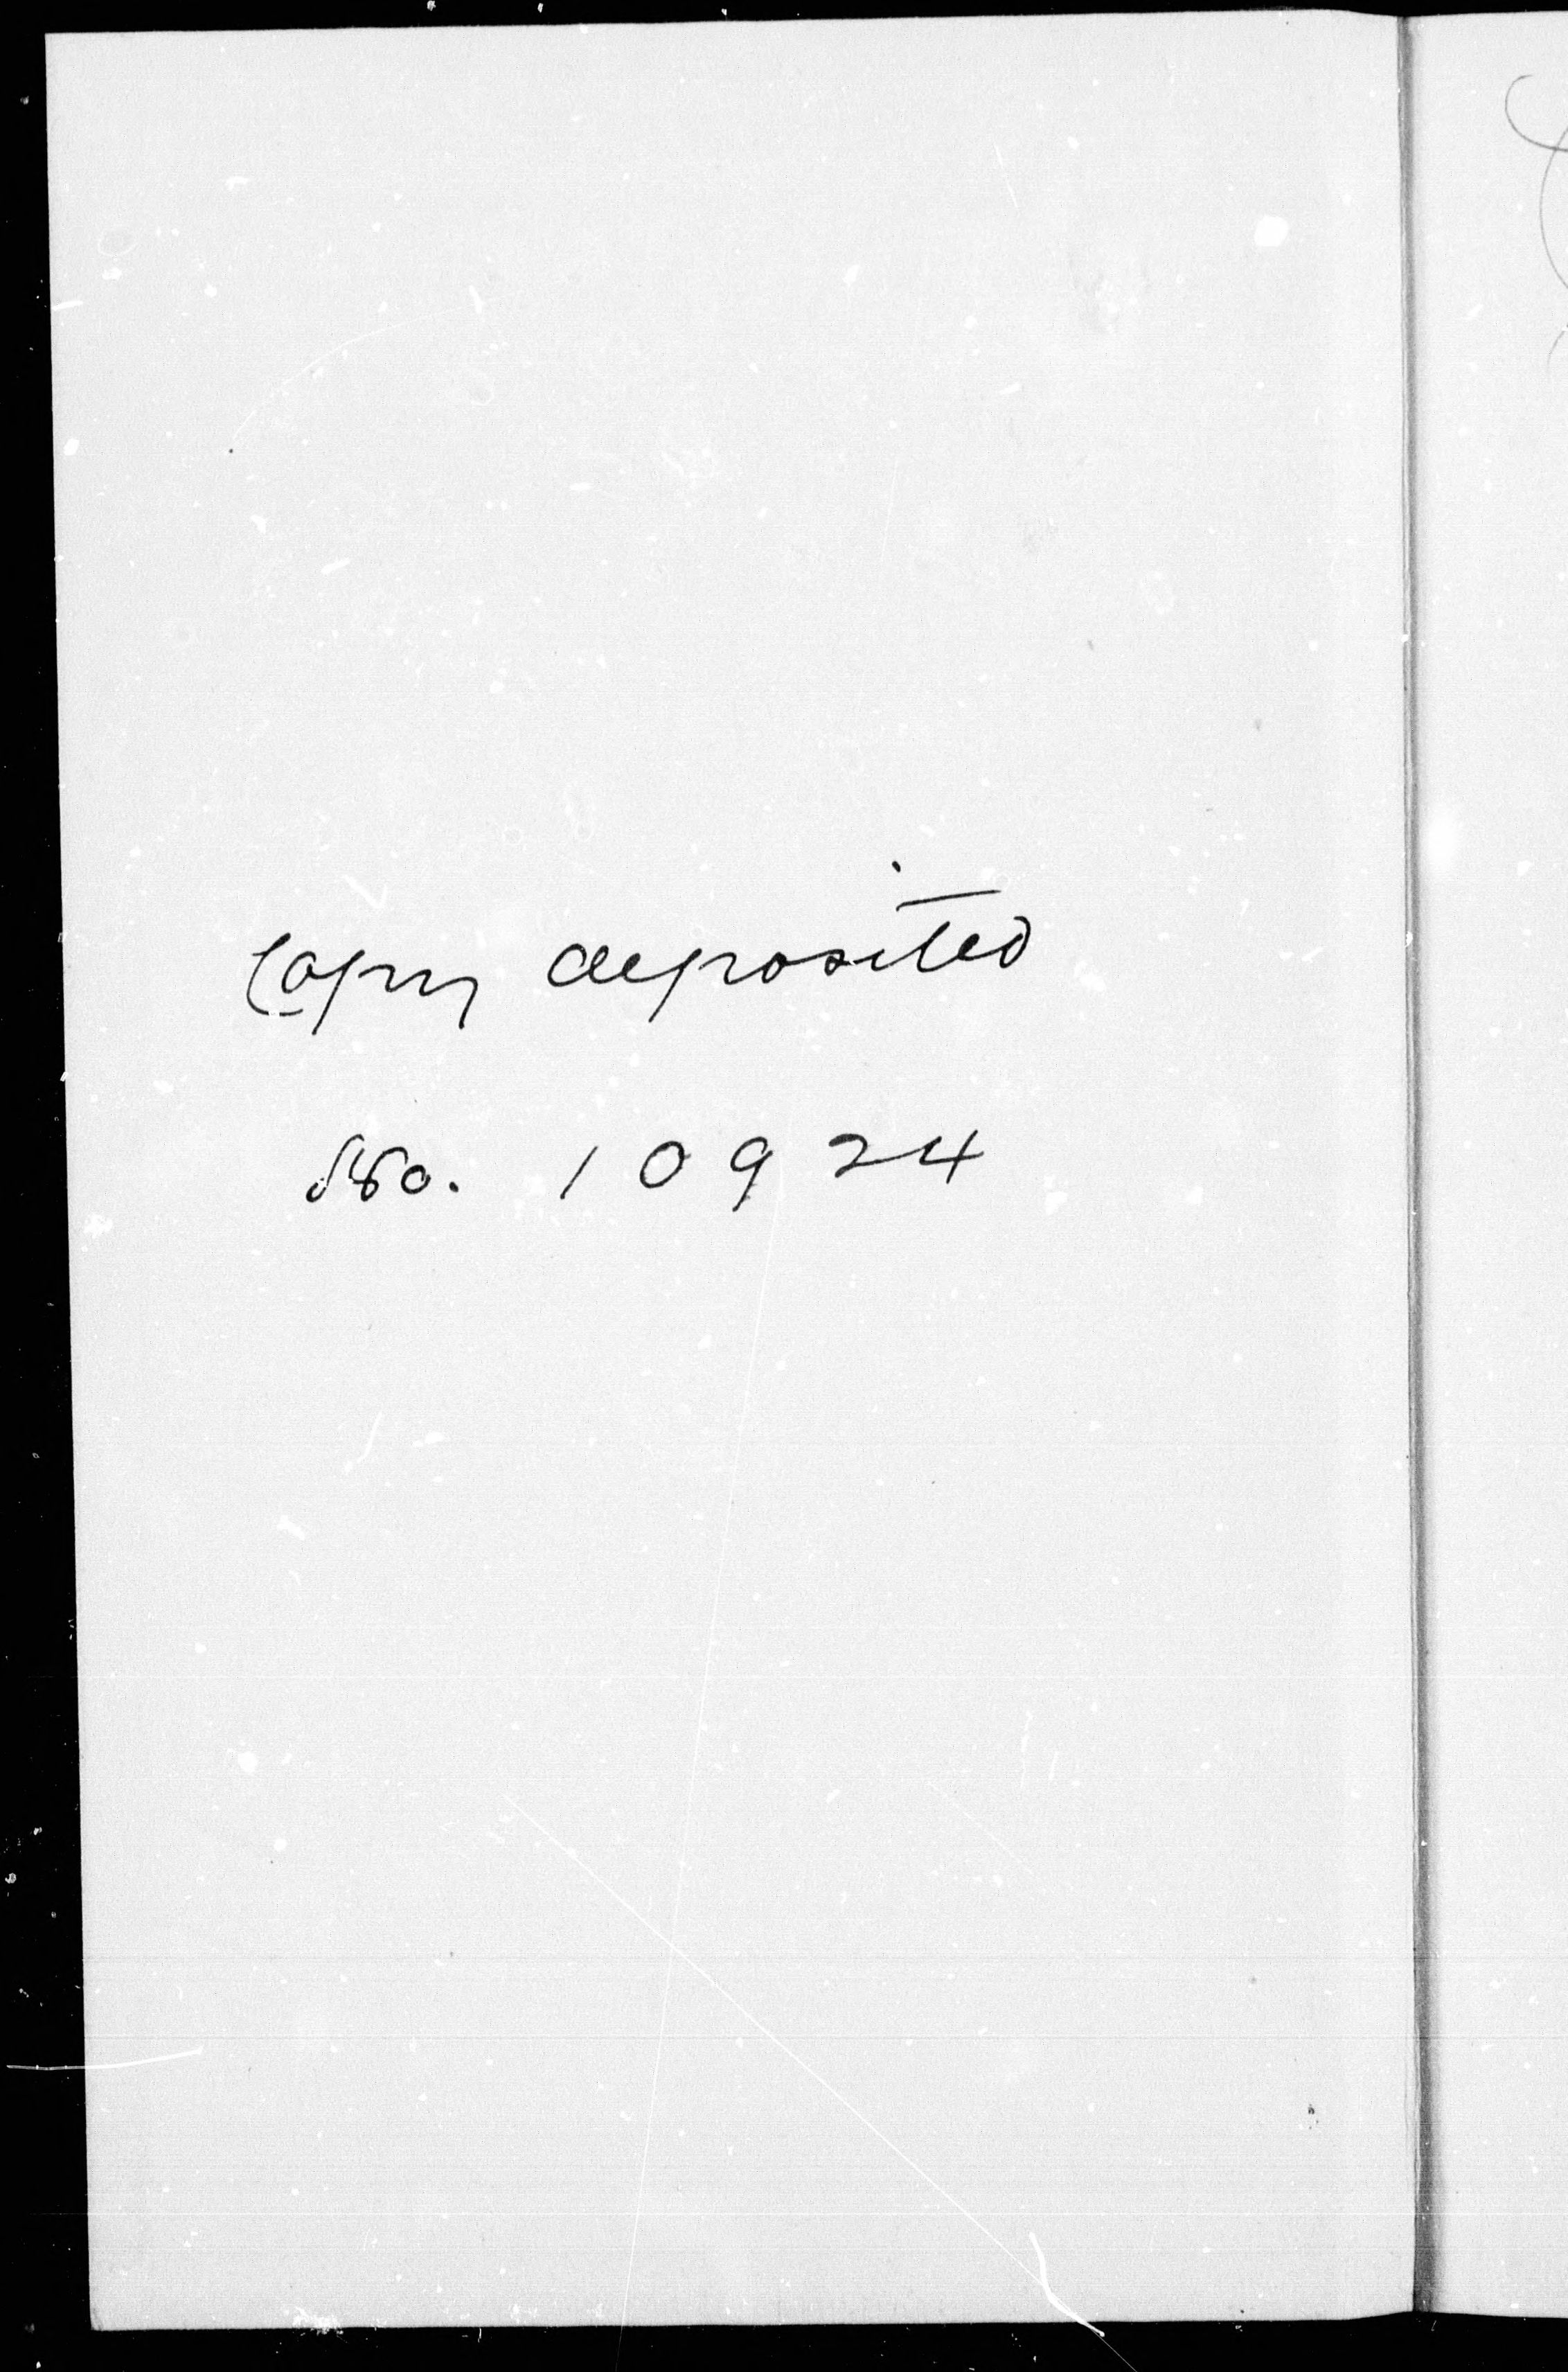 Copy deposited
No. 10924